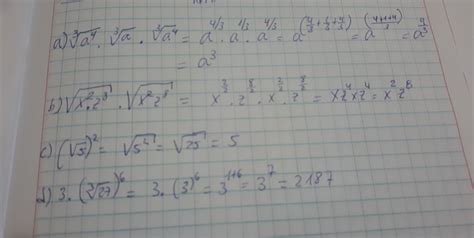 a) ∛a⁴ · ∛a · ∛a⁴ = a^(4/3) · a^(1/3) · a^(4/3) = a^(4/3+1/3+4/3) = a^((4+1+4)/3) = a^(9/3)
= a³
b) √(x²·z⁸) · √(x²z⁸) = x^(2/2) · z^(8/2) · x^(2/2) · z^(8/2) = xz⁴xz⁴ = x²z⁸
c) (√5)² = √5² = √25 = 5
d) 3·(∛27)⁶ = 3·(3)⁶ = 3¹⁺⁶ = 3⁷ = 2187